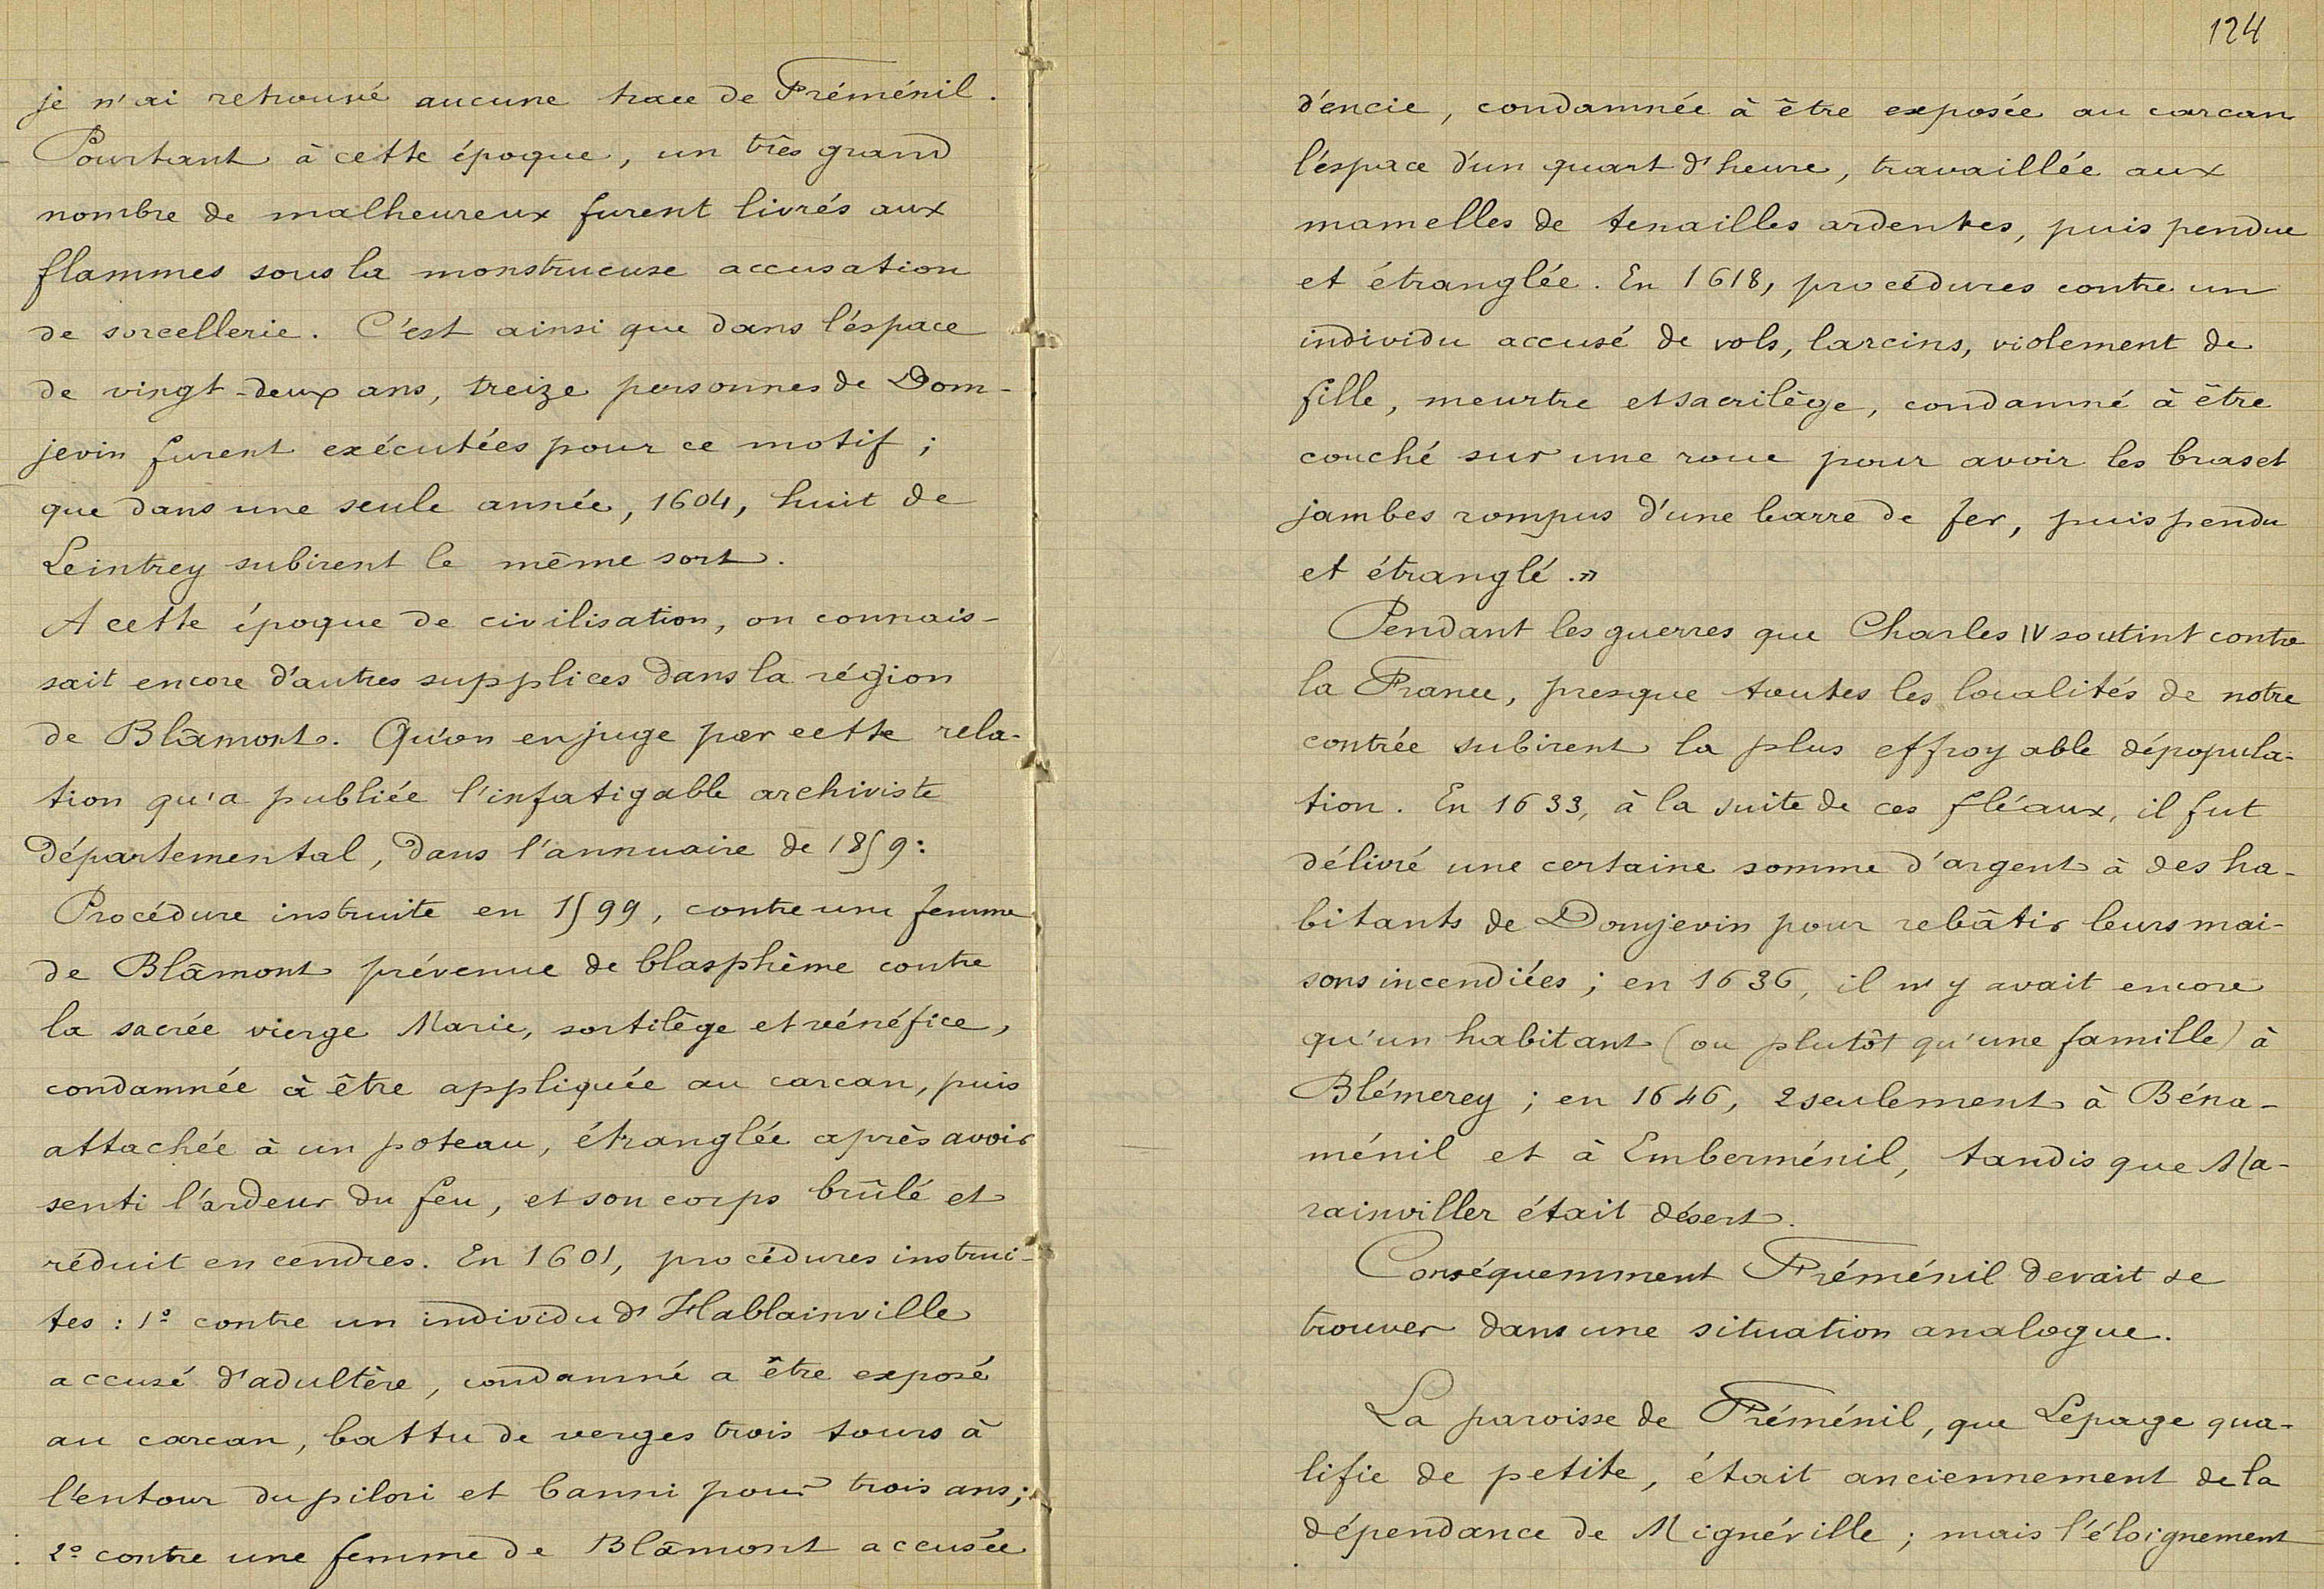 je n'ai retrouvé aucune trace de Fréménil.
Pourtant à cette époque, un très grand
nombre de malheureux furent livrés aux
flammes sous la monstrueuse accusation
de sorcellerie. C'est ainsi que dans l'éspace
de vingt-deux ans, treize personnes de Dom-
jevin furent exécutées pour ce motif ;
que dans une seule année, 1604, huit de
Leintrey subirent le même sort.
A cette époque de civilisation, on connais-
sait encore d'autres supplices dans la région
de Blâmont. Qu'on en juge par cette rela-
tion qu'a publiée l'infatigable archiviste
départemental, dans l'annuaire de 1859 :
Procédure instruite en 1599, contre une femme
de Blâmont prévenue de blasphème contre
la sacrée vierge Marie, sortilège et vénéfice,
condamnée à être appliquée au carcan, puis
attachée à un poteau, étranglée après avoir
senti l'ardeur du feu, et son corps brûlé et
réduit en cendres. En 1601, procédures instrui-
tes : 1º contre un individu d'Hablainville
accusé d'adultère, condamné a être exposé
au carcan, battu de verges trois tours à
l'entour du pilori et banni pour trois ans ;
2º contre une femme de Blâmont accusée
124
d'encie, condamnée à être exposée au carcan
l'éspace d'un quart d'heure, travaillée aux
mamelles de tenailles ardentes, puis pendue
et étranglée. En 1618, procédures contre un
individu accusé de vols, larcins, violement de
fille, meurtre et sacrilège, condamné à être
couché sur une roue pour avoir les bras et
jambes rompus d'une barre de fer, puis pendu
et étranglé. »
Pendant les guerres que Charles IV soutint contre
la France, presque toutes les localités de notre
contrée subirent la plus effroyable dépopula-
tion. En 1633, à la suite de ces fléaux, il fut
délivré une certaine somme d'argent à des ha-
bitants de Domjevin pour rebâtir leurs mai-
sons incendiées ; en 1636, il n'y avait encore
qu'un habitant (ou plutôt qu'une famille) à
Blémerey ; en 1646, 2 seulement à Béna-
ménil et à Emberménil, tandis que Ma-
rainviller était désert.
Conséquemment Fréménil devait se
trouver dans une situation analogue.
La paroisse de Fréménil, que Lepage qua-
lifie de petite, était anciennement de la
dépendance de Mignéville ; mais l'éloignement